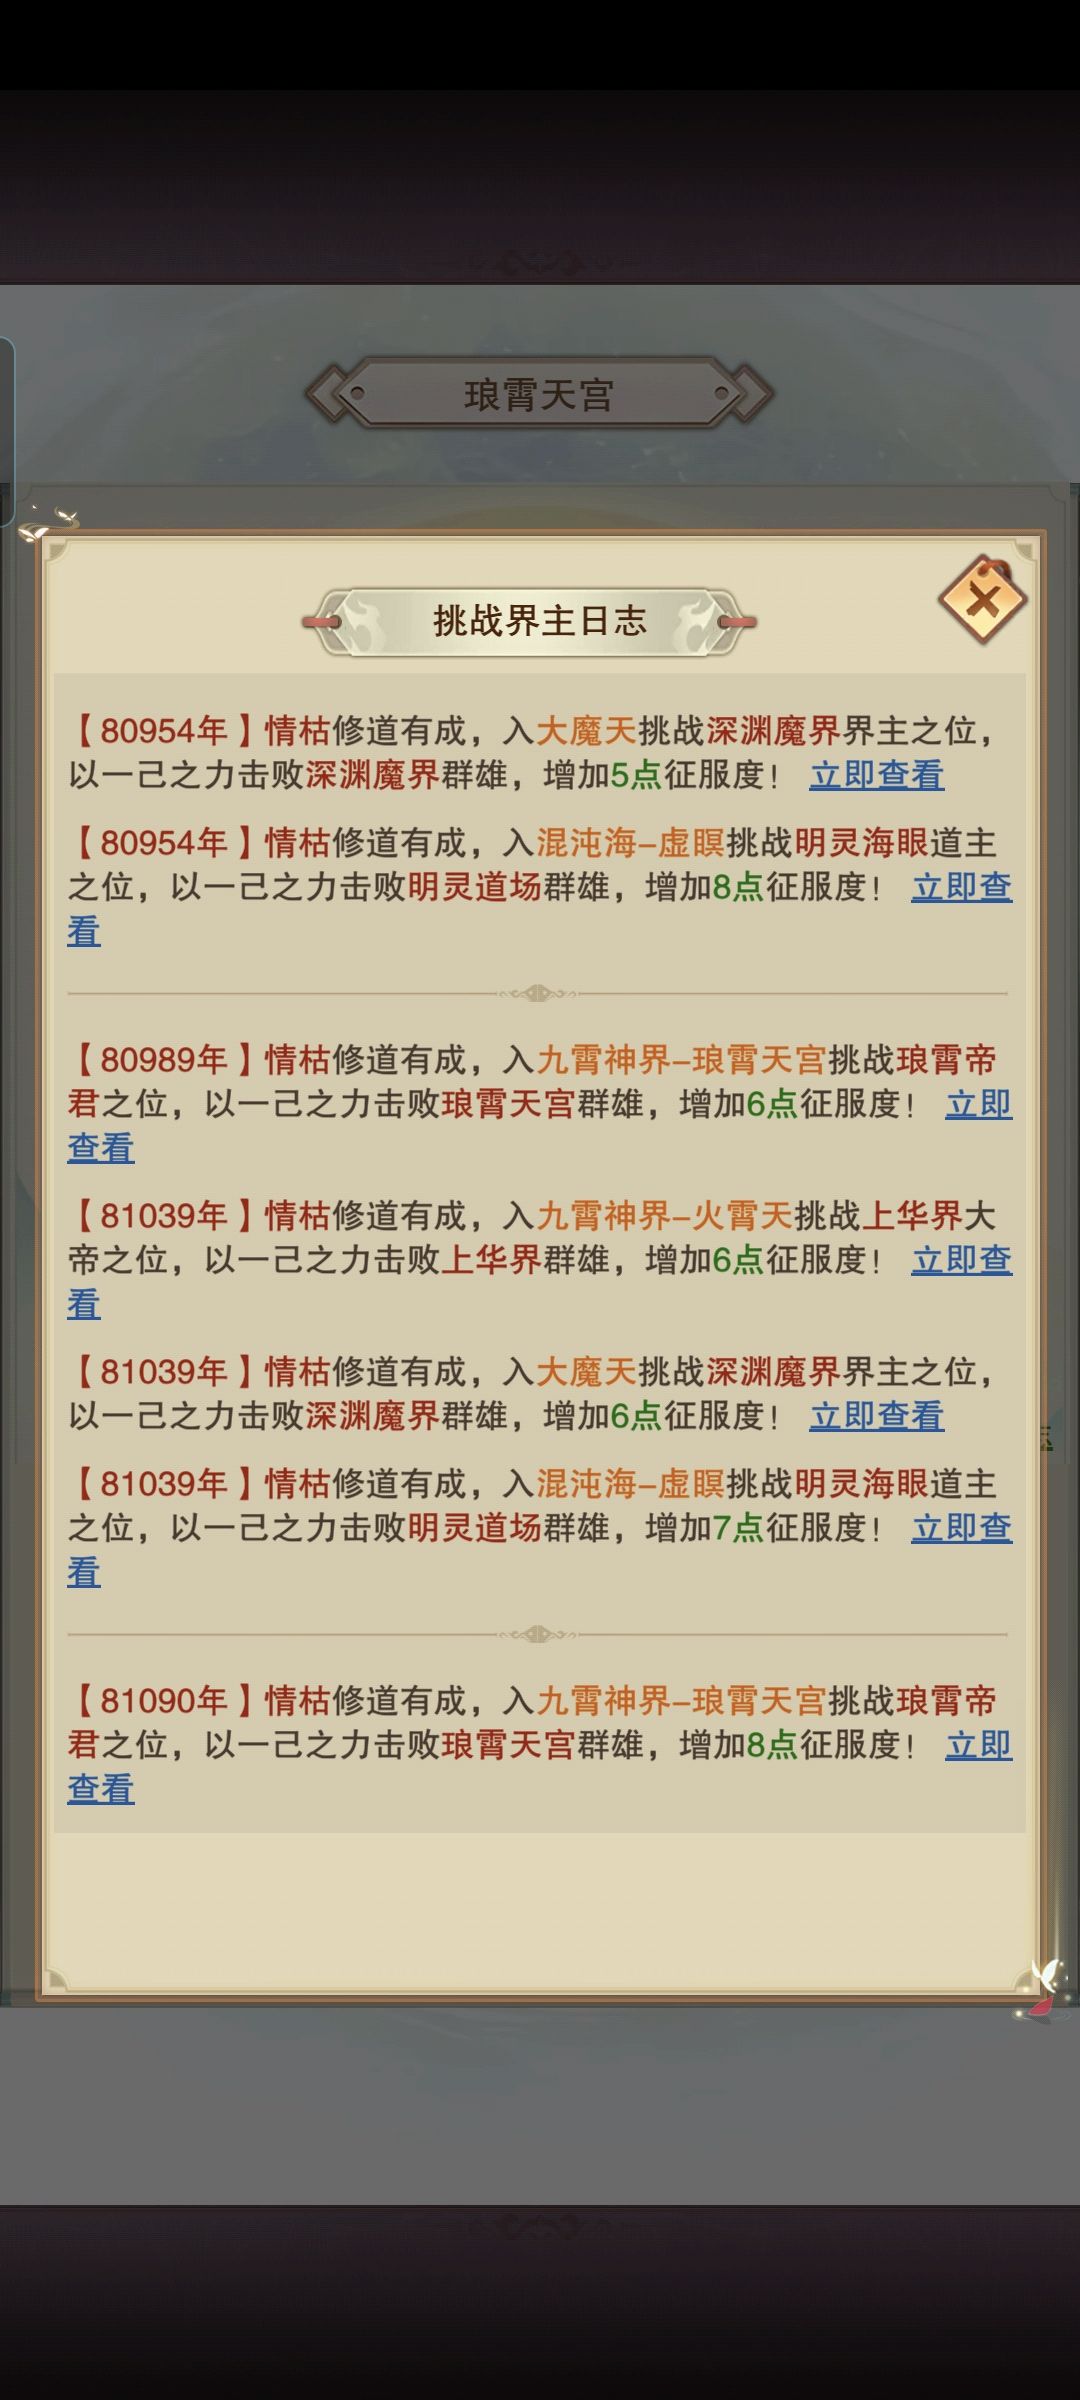 琅霄天宫
挑战界主日志
【80954年】情枯修道有成，入大魔天挑战深渊魔界界主之位，
以一己之力击败深渊魔界群雄，增加5点征服度！ 立即查看
【80954年】情枯修道有成，入混沌海-虚瞑挑战明灵海眼道主
之位，以一己之力击败明灵道场群雄，增加8点征服度！ 立即查
看
【80989年】情枯修道有成，入九霄神界-琅霄天宫挑战琅霄帝
君之位，以一己之力击败琅霄天宫群雄，增加6点征服度！ 立即
查看
【81039年】情枯修道有成，入九霄神界-火霄天挑战上华界大
帝之位，以一己之力击败上华界群雄，增加6点征服度！ 立即查
看
【81039年】情枯修道有成，入大魔天挑战深渊魔界界主之位，
以一己之力击败深渊魔界群雄，增加6点征服度！ 立即查看
【81039年】情枯修道有成，入混沌海-虚瞑挑战明灵海眼道主
之位，以一己之力击败明灵道场群雄，增加7点征服度！ 立即查
看
【81090年】情枯修道有成，入九霄神界-琅霄天宫挑战琅霄帝
君之位，以一己之力击败琅霄天宫群雄，增加8点征服度！ 立即
查看